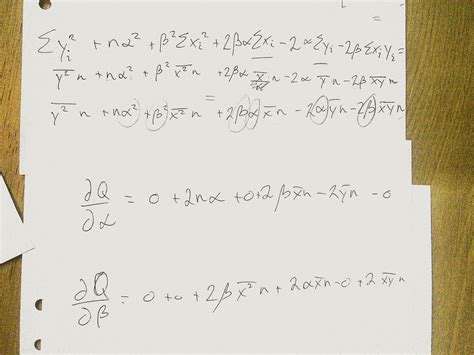 =
Σy_i² + nα² + β²Σx_i² + 2βαΣx_i − 2αΣy_i − 2βΣx_iy_i =
y̅²̅ n + nα² + β² x̅²̅ n + 2βα x̅ n − 2α y̅ n − 2β x̅y̅ n
=
y̅²̅ n + nα² + β² x̅²̅ n + 2βα x̅ n − 2α y̅ n − 2β x̅y̅ n
∂Q/∂α = 0 + 2nα + 0 + 2β x̅ n − 2y̅ n − 0
∂Q/∂β = 0 + 0 + 2β x̅²̅ n + 2α x̅ n − 0 + 2 x̅y̅ n